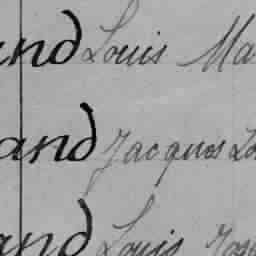 and Louis Ma
and Jacques Lo
and Louis Jos